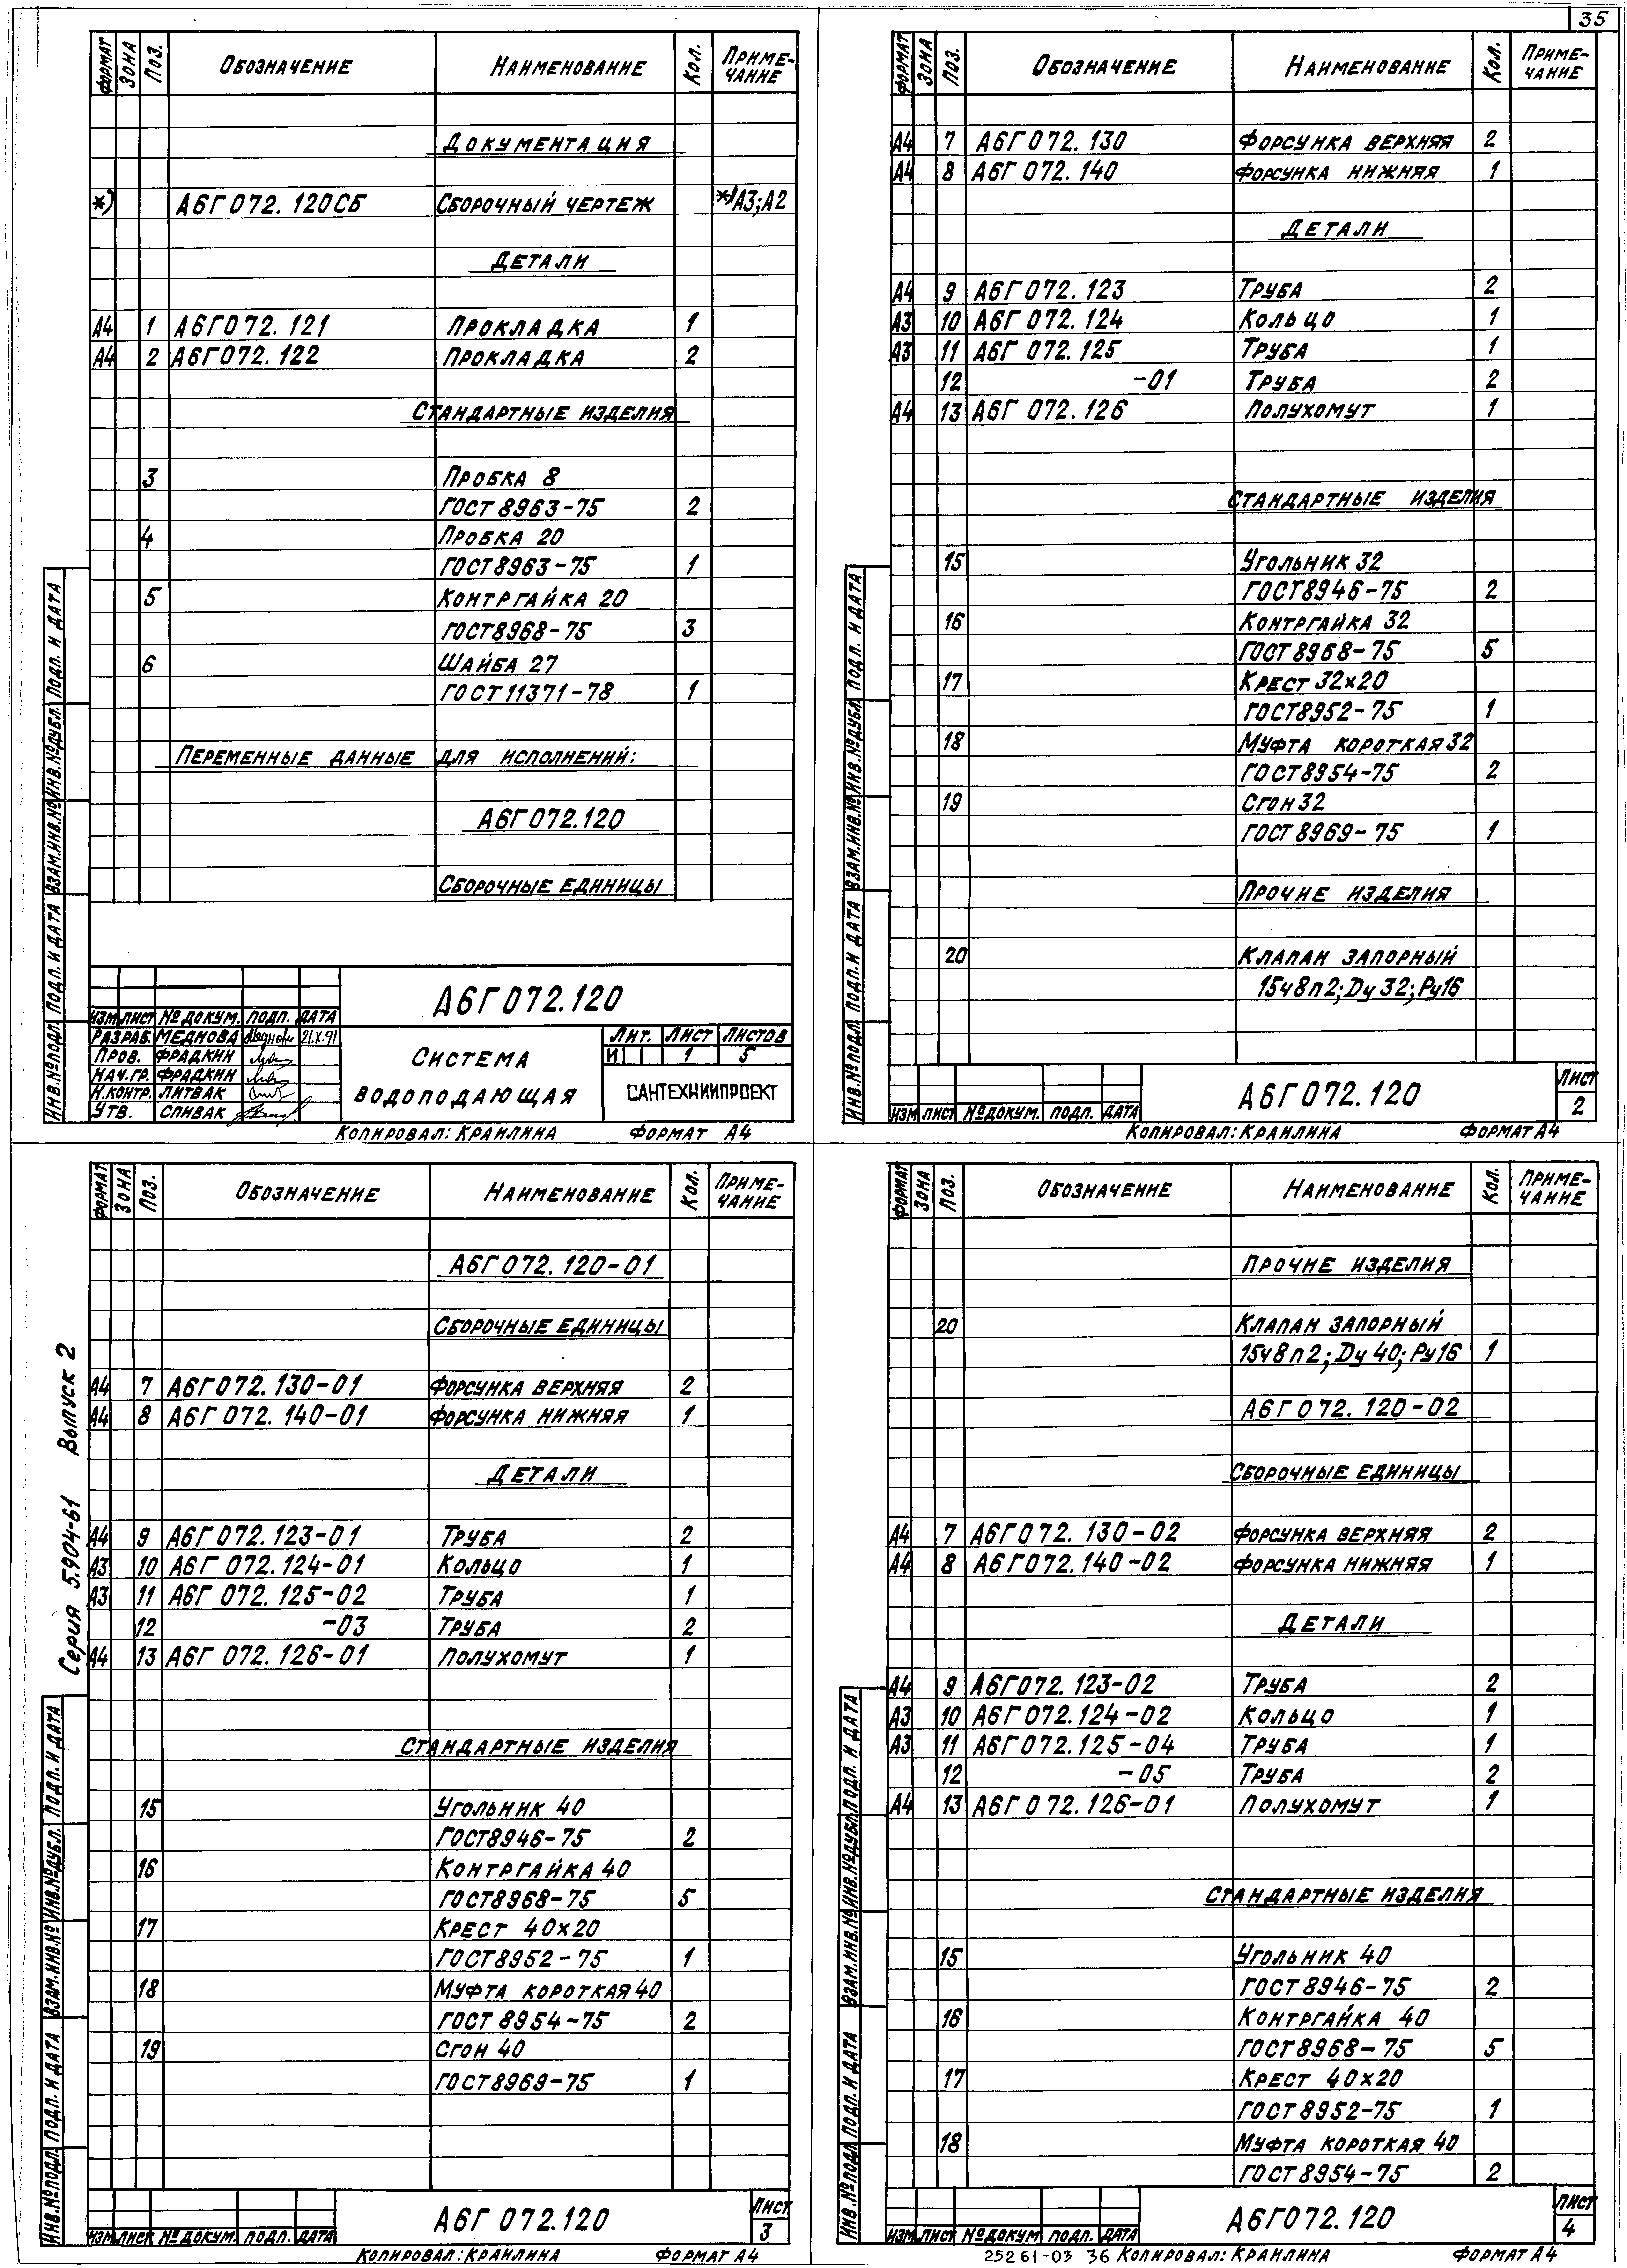 35
ФОРМАТ ЗОНА ПОЗ. ОБОЗНАЧЕНИЕ НАИМЕНОВАНИЕ КОЛ. ПРИМЕ-ЧАНИЕ
ДОКУМЕНТАЦИЯ
*) А6Г072.120СБ СБОРОЧНЫЙ ЧЕРТЕЖ *)А3;А2
ДЕТАЛИ
А4 1 А6Г072.121 ПРОКЛАДКА 1
А4 2 А6Г072.122 ПРОКЛАДКА 2
СТАНДАРТНЫЕ ИЗДЕЛИЯ
3 ПРОБКА 8
ГОСТ 8963-75 2
4 ПРОБКА 20
ГОСТ 8963-75 1
5 КОНТРГАЙКА 20
ГОСТ 8968-75 3
6 ШАЙБА 27
ГОСТ 11371-78 1
ПЕРЕМЕННЫЕ ДАННЫЕ ДЛЯ ИСПОЛНЕНИЙ:
А6Г072.120
СБОРОЧНЫЕ ЕДИНИЦЫ
ИНВ.№ПОДЛ. ПОДП. И ДАТА ВЗАМ.ИНВ.№ ИНВ.№ДУБЛ. ПОДП. И ДАТА
А6Г072.120
ИЗМ ЛИСТ № ДОКУМ. ПОДП. ДАТА
РАЗРАБ. МЕДНОВА 21.X.91
ПРОВ. ФРАДКИН
НАЧ.ГР. ФРАДКИН
Н.КОНТР. ЛИТВАК
УТВ. СПИВАК
СИСТЕМА
ВОДОПОДАЮЩАЯ
ЛИТ. ЛИСТ ЛИСТОВ
И 1 5
САНТЕХНИИПРОЕКТ
КОПИРОВАЛ: КРАИЛИНА ФОРМАТ А4
ФОРМАТ ЗОНА ПОЗ. ОБОЗНАЧЕНИЕ НАИМЕНОВАНИЕ КОЛ. ПРИМЕ-ЧАНИЕ
А4 7 А6Г072.130 ФОРСУНКА ВЕРХНЯЯ 2
А4 8 А6Г072.140 ФОРСУНКА НИЖНЯЯ 1
ДЕТАЛИ
А4 9 А6Г072.123 ТРУБА 2
А3 10 А6Г072.124 КОЛЬЦО 1
А3 11 А6Г072.125 ТРУБА 1
12 -01 ТРУБА 2
А4 13 А6Г072.126 ПОЛУХОМУТ 1
СТАНДАРТНЫЕ ИЗДЕЛИЯ
15 УГОЛЬНИК 32
ГОСТ 8946-75 2
16 КОНТРГАЙКА 32
ГОСТ 8968-75 5
17 КРЕСТ 32х20
ГОСТ 8952-75 1
18 МУФТА КОРОТКАЯ 32
ГОСТ 8954-75 2
19 СГОН 32
ГОСТ 8969-75 1
ПРОЧИЕ ИЗДЕЛИЯ
20 КЛАПАН ЗАПОРНЫЙ
15ч8п2; Dу 32; Pу16
ИНВ.№ПОДЛ. ПОДП. И ДАТА ВЗАМ.ИНВ.№ ИНВ.№ДУБЛ. ПОДП. И ДАТА
ИЗМ ЛИСТ № ДОКУМ. ПОДП. ДАТА А6Г072.120 ЛИСТ 2
КОПИРОВАЛ: КРАИЛИНА ФОРМАТ А4
Серия 5.904-61 Выпуск 2
ФОРМАТ ЗОНА ПОЗ. ОБОЗНАЧЕНИЕ НАИМЕНОВАНИЕ КОЛ. ПРИМЕ-ЧАНИЕ
А6Г072.120-01
СБОРОЧНЫЕ ЕДИНИЦЫ
А4 7 А6Г072.130-01 ФОРСУНКА ВЕРХНЯЯ 2
А4 8 А6Г072.140-01 ФОРСУНКА НИЖНЯЯ 1
ДЕТАЛИ
А4 9 А6Г072.123-01 ТРУБА 2
А3 10 А6Г072.124-01 КОЛЬЦО 1
А3 11 А6Г072.125-02 ТРУБА 1
12 -03 ТРУБА 2
А4 13 А6Г072.126-01 ПОЛУХОМУТ 1
СТАНДАРТНЫЕ ИЗДЕЛИЯ
15 УГОЛЬНИК 40
ГОСТ 8946-75 2
16 КОНТРГАЙКА 40
ГОСТ 8968-75 5
17 КРЕСТ 40х20
ГОСТ 8952-75 1
18 МУФТА КОРОТКАЯ 40
ГОСТ 8954-75 2
19 СГОН 40
ГОСТ 8969-75 1
ИНВ.№ПОДЛ. ПОДП. И ДАТА ВЗАМ.ИНВ.№ ИНВ.№ДУБЛ. ПОДП. И ДАТА
ИЗМ ЛИСТ № ДОКУМ. ПОДП. ДАТА А6Г072.120 ЛИСТ 3
КОПИРОВАЛ: КРАИЛИНА ФОРМАТ А4
ФОРМАТ ЗОНА ПОЗ. ОБОЗНАЧЕНИЕ НАИМЕНОВАНИЕ КОЛ. ПРИМЕ-ЧАНИЕ
ПРОЧИЕ ИЗДЕЛИЯ
20 КЛАПАН ЗАПОРНЫЙ
15ч8п2; Dу 40; Pу16 1
А6Г072.120-02
СБОРОЧНЫЕ ЕДИНИЦЫ
А4 7 А6Г072.130-02 ФОРСУНКА ВЕРХНЯЯ 2
А4 8 А6Г072.140-02 ФОРСУНКА НИЖНЯЯ 1
ДЕТАЛИ
А4 9 А6Г072.123-02 ТРУБА 2
А3 10 А6Г072.124-02 КОЛЬЦО 1
А3 11 А6Г072.125-04 ТРУБА 1
12 -05 ТРУБА 2
А4 13 А6Г072.126-01 ПОЛУХОМУТ 1
СТАНДАРТНЫЕ ИЗДЕЛИЯ
15 УГОЛЬНИК 40
ГОСТ 8946-75 2
16 КОНТРГАЙКА 40
ГОСТ 8968-75 5
17 КРЕСТ 40х20
ГОСТ 8952-75 1
18 МУФТА КОРОТКАЯ 40
ГОСТ 8954-75 2
ИНВ.№ПОДЛ. ПОДП. И ДАТА ВЗАМ.ИНВ.№ ИНВ.№ДУБЛ. ПОДП. И ДАТА
ИЗМ ЛИСТ № ДОКУМ. ПОДП. ДАТА А6Г072.120 ЛИСТ 4
25261-03 36 КОПИРОВАЛ: КРАИЛИНА ФОРМАТ А4